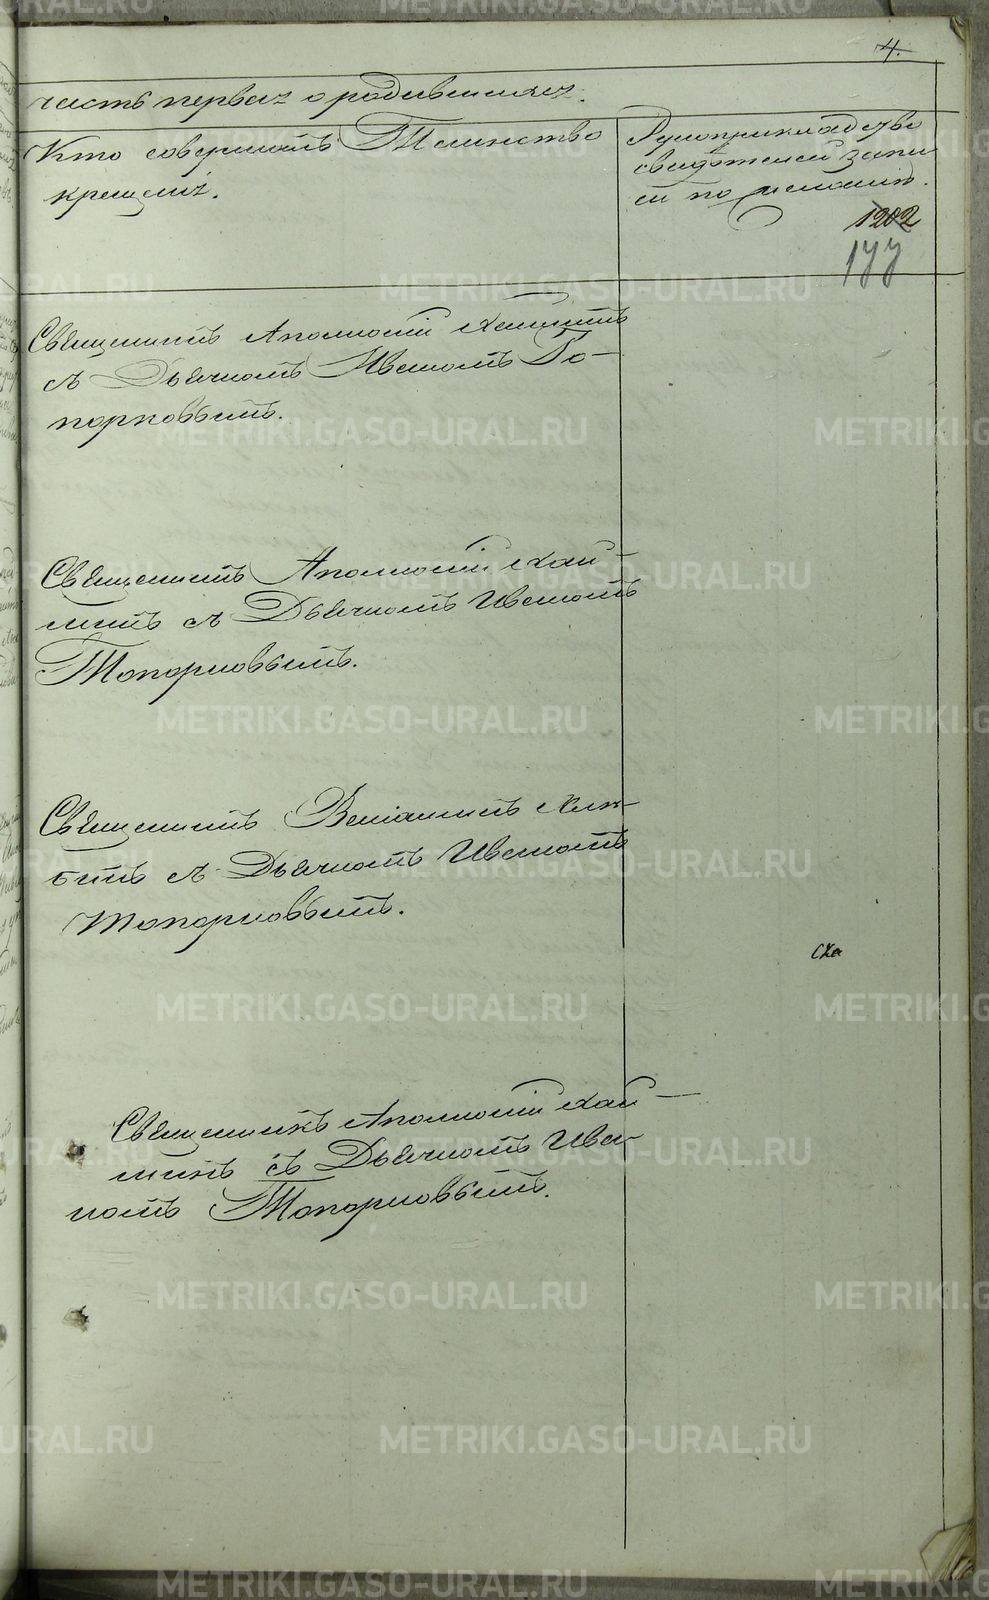 4.
часть первая о родившихся.
Кто совершалъ Таинство
крещенія.
Рукоприкладство
свидѣтелей запи
си по желанію.
1202
177
Священникъ Аполлоній
съ Дьячкомъ Иваномъ То-
порковымъ.
Священникъ Аполлоній Хай-
минъ съ Дьячкомъ Иваномъ
Топорковымъ.
Священникъ Веніаминъ
съ Дьячкомъ Иваномъ
Топорковымъ.
Священникъ Аполлоній Хай-
минъ съ Дьячкомъ Ива-
номъ Топорковымъ.
METRIKI.GASO-URAL.RU